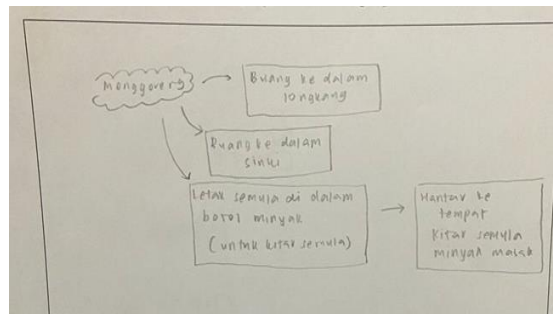 Menggoreng
Buang ke dalam
longkang
Buang ke dalam
sinki
Letak semula di dalam
botol minyak
(untuk kitar semula)
Hantar ke
tempat
kitar semula
minyak masak